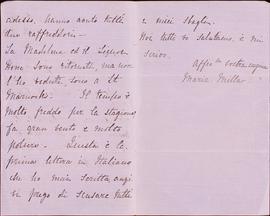 adesso, hanno avuto tutti
due raffreddori.
La Madelina ed il Signor
sono ritornati, ma non
l'ho veduto, sono a St
Il tempo è
molto freddo per la stagione,
fa gran vento e molto
polvere. Questa è la
prima lettera in Italiano
che ho mai scritta,
vi prego di scusare tutti
i miei sbagli.
Noi tutti vi salutiamo, e mi
scrivo.
Affma vostra cugina
Maria Millar